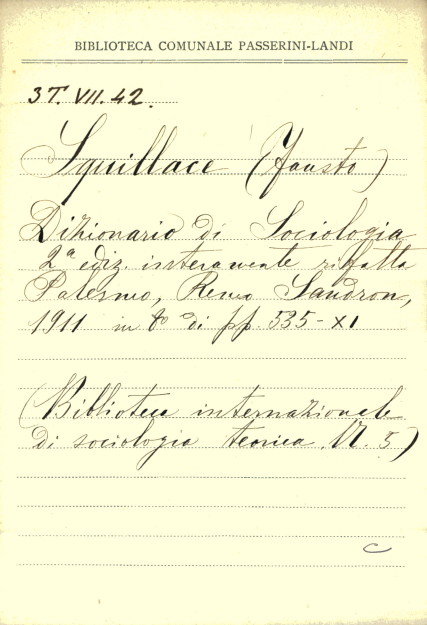 BIBLIOTECA COMUNALE PASSERINI-LANDI
3T. VII. 42.
Squillace (Fausto)
Dizionario di Sociologia
2ª ediz. interamente rifatta
Palermo, Remo Sandron,
1911 in 8º di pp. 535-XI
(Biblioteca internazionale
di sociologia teorica. N. 5)
C